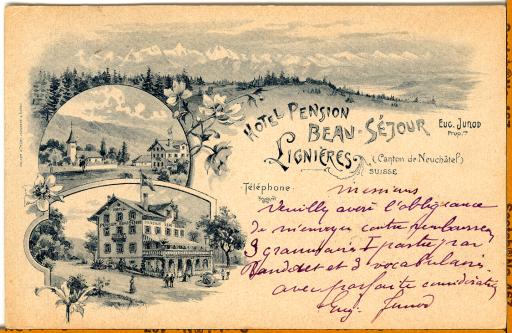 HOTEL PENSION
BEAU-SÉJOUR
EUG. JUNOD
PROP.
LIGNIÈRES
(Canton de Neuchâtel)
SUISSE
Téléphone
Messieurs
Veuillez avoir l'obligeance
de m'envoyer contre remboursem
3 grammaires I partie par
et 3 vocabulaires
avec parfaite considération
Eug. Junod